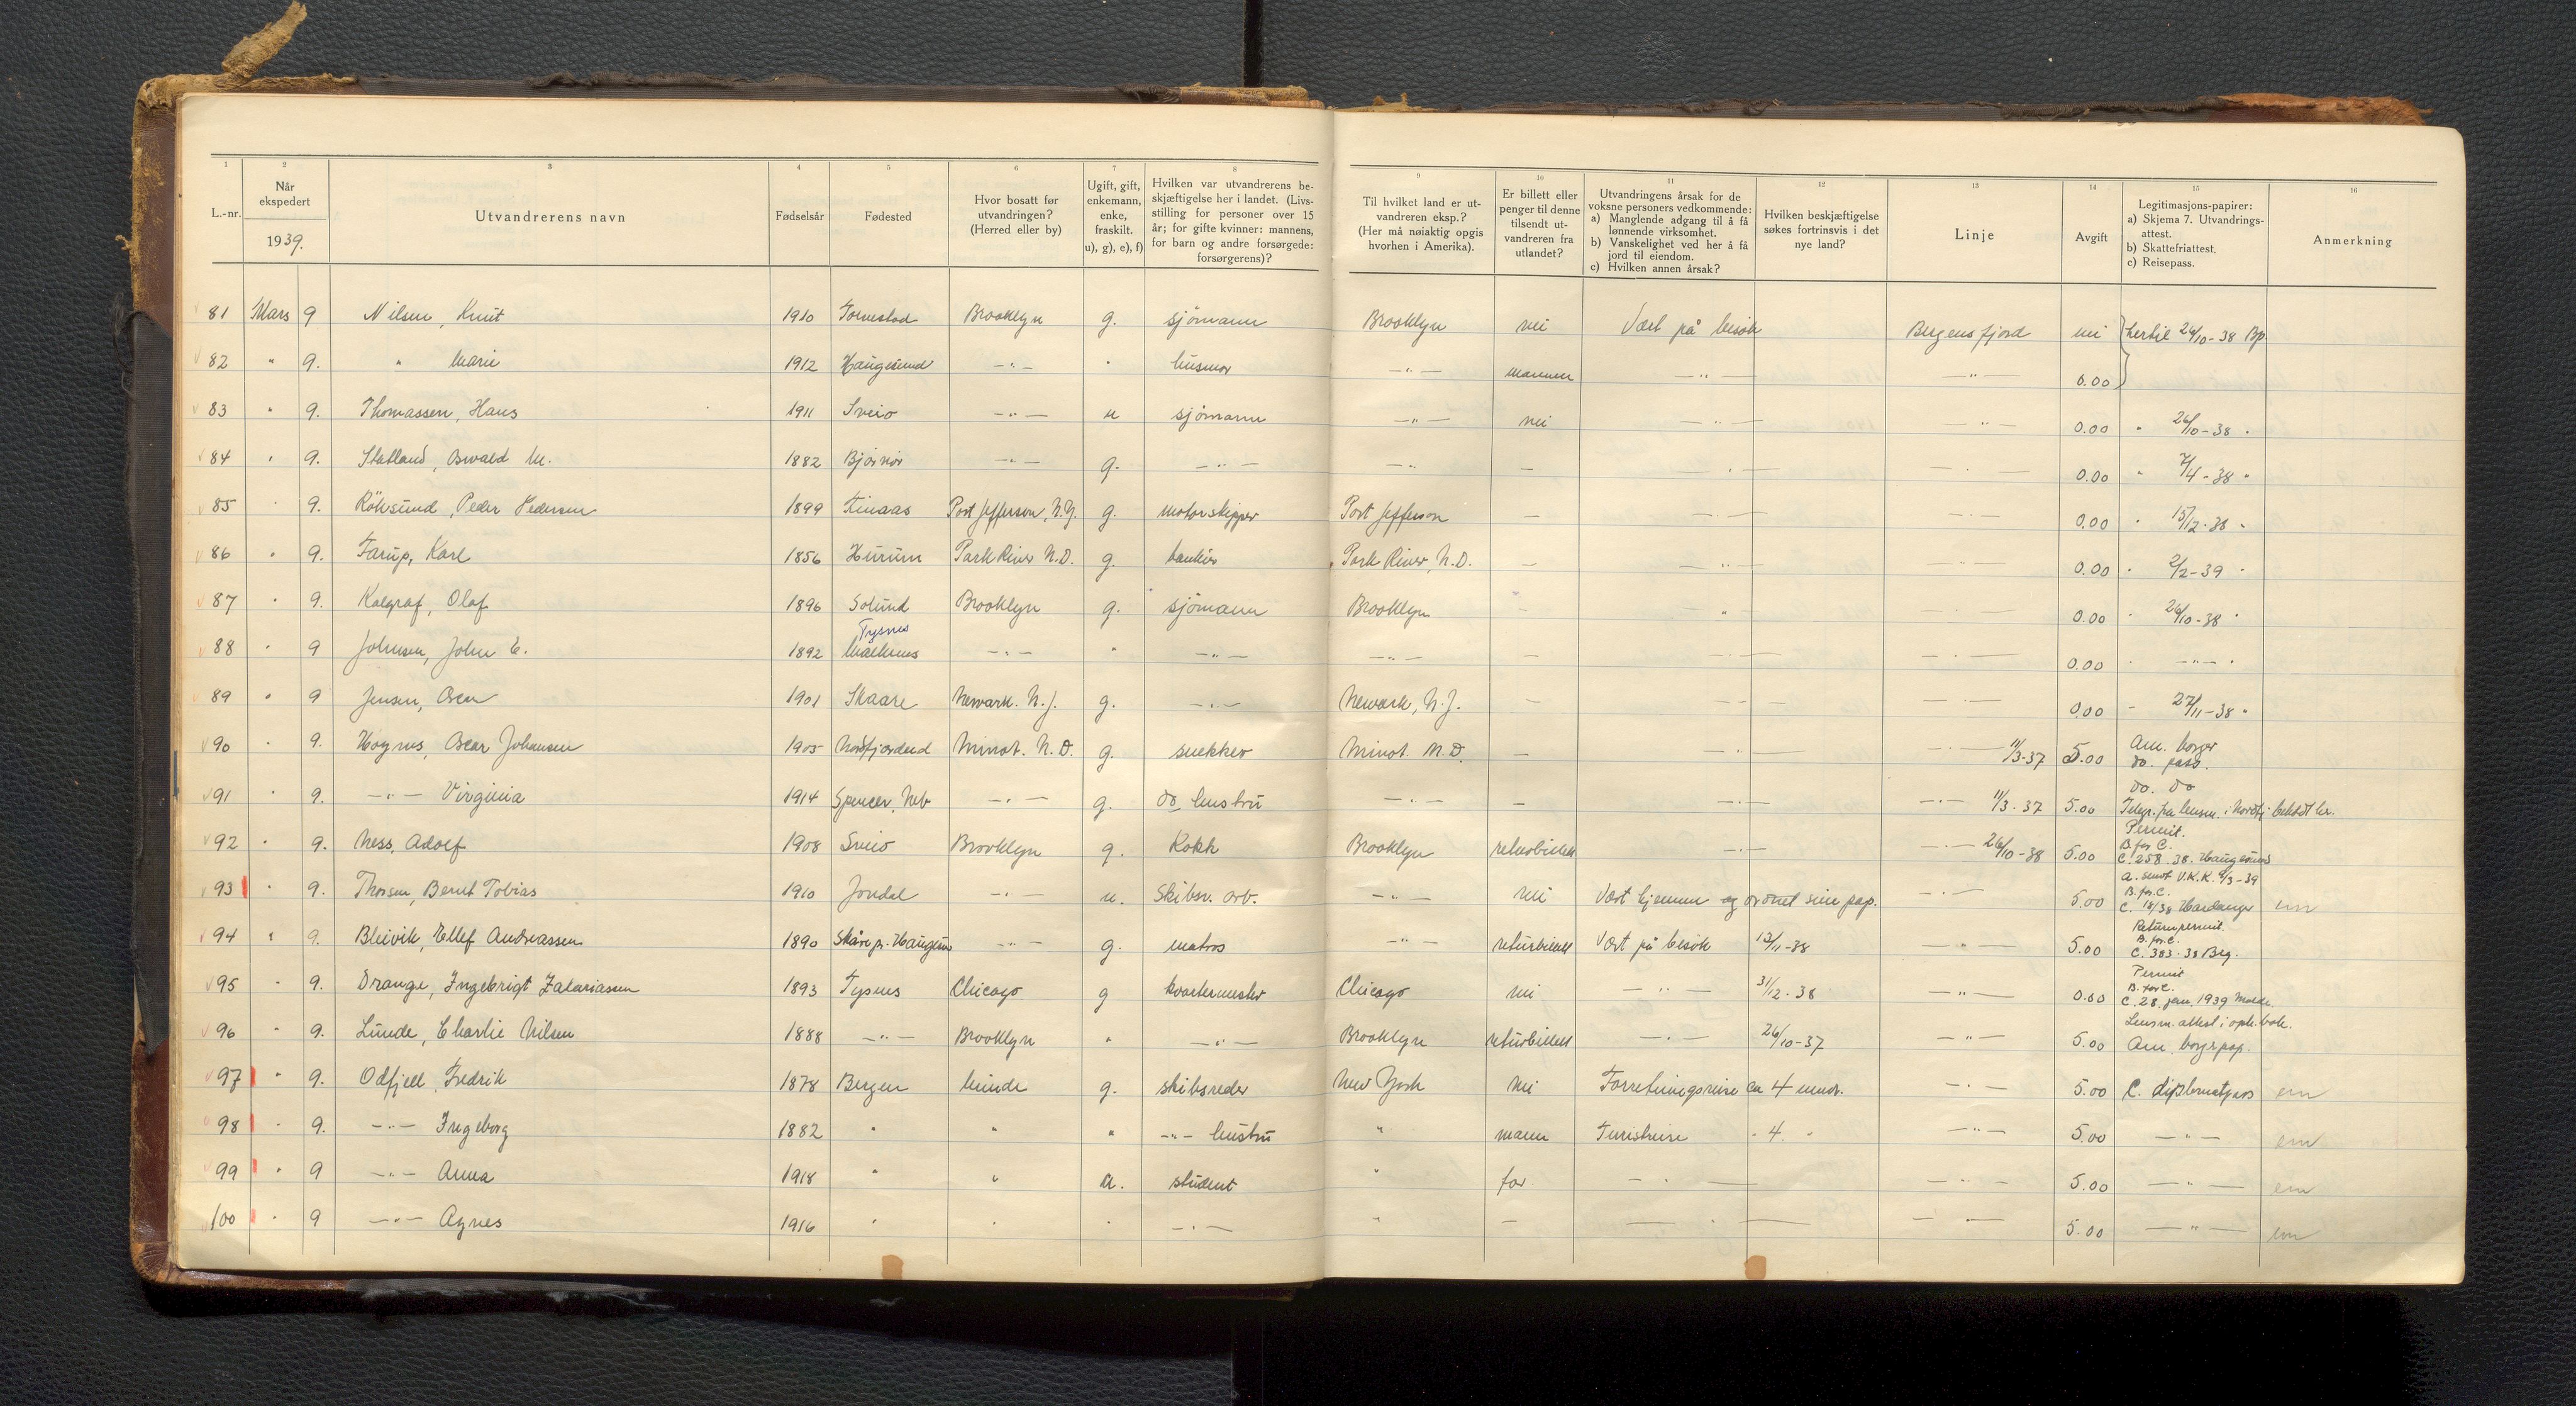 1 2 3 4 5 6 7 8 9 10 11 12 13 14 15 16
L.-nr. Når ekspedert 1939. Utvandrerens navn Fødselsår Fødested Hvor bosatt før utvandringen? (Herred eller by) Ugift, gift, enkemann, enke, fraskilt. u), g), e), f) Hvilken var utvandrerens beskjæftigelse her i landet. (Livsstilling for personer over 15 år; for gifte kvinner: mannens, for barn og andre forsørgede: forsørgerens)? Til hvilket land er utvandreren eksp.? (Her må nøiaktig opgis hvorhen i Amerika). Er billett eller penger til denne tilsendt utvandreren fra utlandet? Utvandringens årsak for de voksne personers vedkommende: a) Manglende adgang til å få lønnende virksomhet. b) Vanskelighet ved her å få jord til eiendom. c) Hvilken annen årsak? Hvilken beskjæftigelse søkes fortrinsvis i det nye land? Linje Avgift Legitimasjons-papirer: a) Skjema 7. Utvandringsattest. b) Skattefriattest. c) Reisepass. Anmerkning
81 Mars 9 Nilsen, Knut 1910 Torvestad Brooklyn g. sjömann Brooklyn nei Vært på besök Bergensfjord nei hertil 26/10-38 Bp.
82 " 9. " Marie 1912 Haugesund -"- " husmor -"- mannen -"- -"- 0.00
83 " 9. Thomassen, Hans 1911 Sveio -"- u sjömann -"- nei -"- -"- 0.00 " 26/10-38 "
84 " 9. Statland, Oswald M. 1882 Bjørnör -"- g. -"- -"- — -"- -"- 0.00 " 7/4-38 "
85 " 9. Röksund, Peder Pedersen 1899 Finaas Port Jefferson, N.Y. g. motorskipper Port Jefferson — -"- -"- 0.00 " 15/12-38 "
86 " 9. Farup, Karl 1856 Hurum Park River N.D. g. bankier Park River, N.D. — -"- -"- 0.00 " 2/2-39 "
87 " 9. Kalgraf, Olaf 1896 Solund Brooklyn g. sjömann Brooklyn — " -"- 0.00 " 26/10-38 "
Tysnes
88 " 9 Johnsen, John E. 1892 -"- " -"- -"- — -"- -"- 0.00 " -"- "
89 " 9 Jensen, Oscar 1901 Skaare Newark. N.J. g. -"- Newark, N.J. — -"- -"- 0.00 - 27/11-38 "
90 " 9. Hognes, Oscar Johansen 1905 Nordfjordeid Minot. N.D. g. snekker Minot. N.D. — -"- -"- 11/3-37 5.00 Am. borger
do. pass.
91 " 9. -"- Virginia 1914 Spencer, Neb -"- g. do hustru -"- — -"- -"- 11/3-37 5.00 do. do
Telegr. fra lensm. i Nordfj. betalt her.
92 " 9. Ness, Adolf 1908 Sveio Brooklyn g. Kokk Brooklyn returbillett -"- -"- 26/10-38 5.00 Permit.
B. for C.
C. 258-38. Haugesund
93 " 9. Thorsen, Bernt Tobias 1910 Jondal -"- u. Skibsv. arb. -"- nei Vært hjemme og ordnet sine pap. -"- 5.00 a. smot V.K.K. 8/3-39
B. for C.
C. 18/38 Hardanger em
94 " 9. Bleivik, Ellef Andreassen 1890 Skåre pr. Haugesund -"- g. matros -"- returbillett Vært på besök 13/11-38 -"- 5.00 Returnpermit.
B. for C.
C. 383-38 Brg.
95 " 9. Drange, Ingebrigt Zakariassen 1893 Tysnes Chicago g kvartermester Chicago nei -"- 31/12-38 -"- 0.00 Permit
B. for C.
C. 28. jan. 1939 Molde.
96 " 9. Lunde, Charlie Nilsen 1888 -"- Brooklyn " -"- Brooklyn returbillett -"- 26/10-37 -"- 5.00 Lensm. attest i opk.bok.
Am. borgerpap.
97 " 9. Odfjell, Fredrik 1878 Bergen Minde g. skibsreder New York nei Forretningsreise ca 4 mndr. -"- 5.00 C. diplomatpass em
98 " 9. -"- Ingeborg 1882 " " " -"- hustru " mann Turistreise " 4 " -"- 5.00 -"- em
99 " 9 -"- Anna 1918 " " u. student " far -"- -"- 5.00 -"- em
100 " 9 -"- Agnes 1916 " " " -"- " — -"- -"- 5.00 -"- em